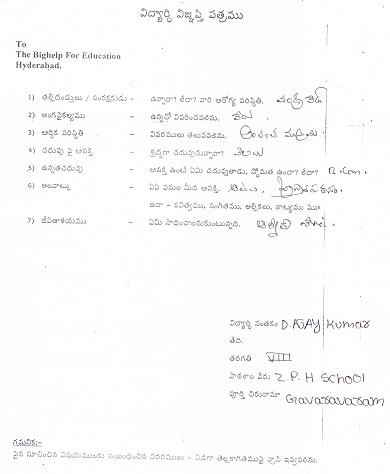 విద్యార్థి విజ్ఞప్తి పత్రము
To
The Bighelp For Education
Hyderabad.
1) తల్లిదండ్రులు / సంరక్షకుడు - ఉన్నారా? లేదా? వారి ఆరోగ్య పరిస్థితి.
2) అంగవైకల్యము - ఉన్నచో వివరించవలెను. లేదు
3) ఆర్థిక పరిస్థితి - వివరములు తెలుపవలెను.
4) చదువు పై ఆసక్తి - శ్రద్ధగా చదువుచున్నారా?
5) ఉన్నతచదువు - ఆసక్తి ఉంటే ఏమి చదువుతాడు, స్తోమత ఉందా? లేదా? B.Com.
6) అలవాట్లు - ఏఏ పనుల మీద ఆసక్తి.
ఉదా - కవిత్వము, సంగీతము, అల్లికలు, నాట్యము మొ
7) జీవితాశయము - ఏమి సాధించాలనుకుంటున్నది.
విద్యార్థి సంతకం D. AJAY Kumar
తేది.
తరగతి VIII
పాఠశాల పేరు Z.P.H SCHOOL
పూర్తి చిరునామా Gravaravaram
గమనిక:-
పైన సూచించిన విషయములకు సంబంధించిన వివరములు - విడిగా తెల్లకాగితముపై వ్రాసి ఇవ్వవలెను.